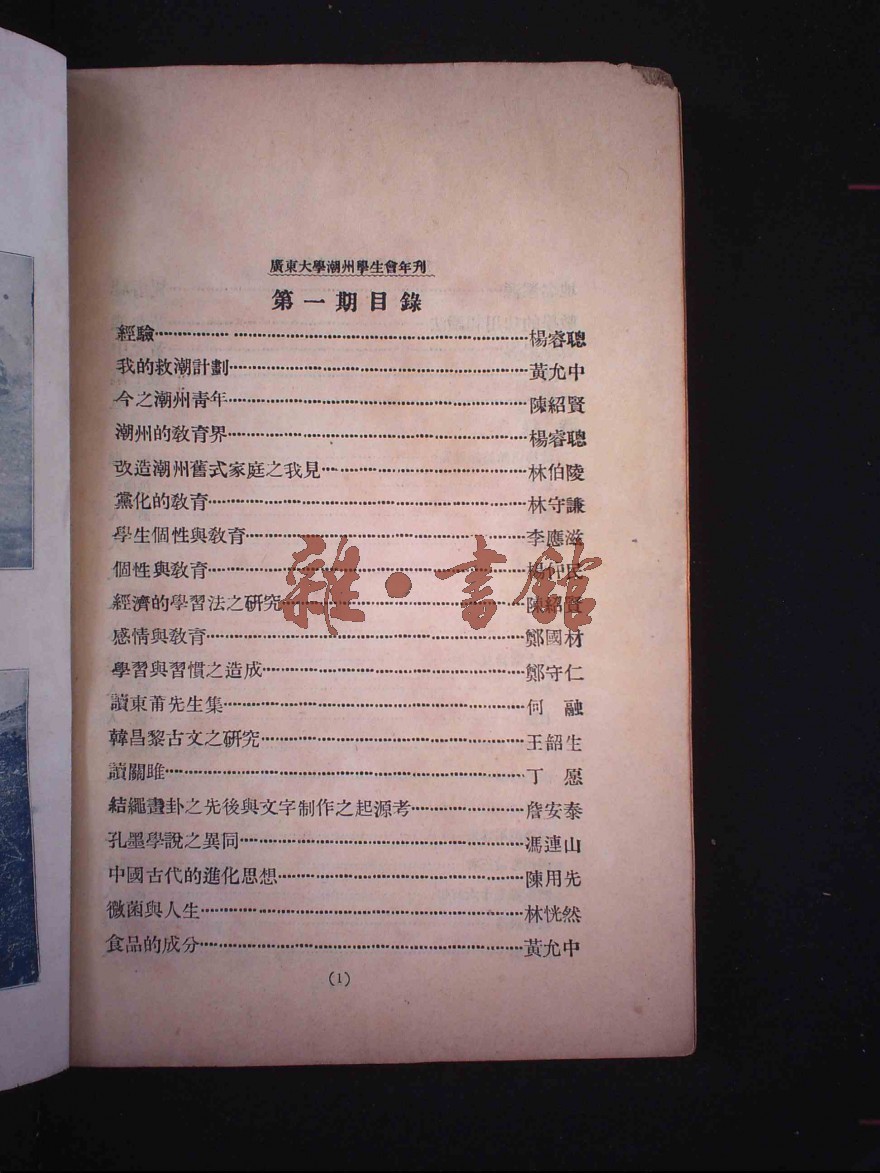 廣東大學潮州學生會年刊
第一期目錄
經驗⋯⋯⋯⋯⋯⋯⋯⋯楊睿聰
我的救潮計劃⋯⋯⋯⋯⋯⋯⋯⋯黃允中
今之潮州靑年⋯⋯⋯⋯⋯⋯⋯⋯陳紹賢
潮州的敎育界⋯⋯⋯⋯⋯⋯⋯⋯楊睿聰
改造潮州舊式家庭之我見⋯⋯⋯⋯⋯⋯⋯⋯林伯陵
黨化的敎育⋯⋯⋯⋯⋯⋯⋯⋯林守謙
學生個性與敎育⋯⋯⋯⋯⋯⋯⋯⋯李應滋
個性與敎育⋯⋯⋯⋯⋯⋯⋯⋯楊仲民
經濟的學習法之研究⋯⋯⋯⋯⋯⋯⋯⋯陳紹賢
感情與敎育⋯⋯⋯⋯⋯⋯⋯⋯鄭國材
學習與習慣之造成⋯⋯⋯⋯⋯⋯⋯⋯鄭守仁
讀東莆先生集⋯⋯⋯⋯⋯⋯⋯⋯何 融
韓昌黎古文之研究⋯⋯⋯⋯⋯⋯⋯⋯王韶生
讀關雎⋯⋯⋯⋯⋯⋯⋯⋯丁 愿
結繩畫卦之先後與文字制作之起源考⋯⋯⋯⋯⋯⋯⋯⋯詹安泰
孔墨學說之異同⋯⋯⋯⋯⋯⋯⋯⋯馮連山
中國古代的進化思想⋯⋯⋯⋯⋯⋯⋯⋯陳用先
微菌與人生⋯⋯⋯⋯⋯⋯⋯⋯林恍然
食品的成分⋯⋯⋯⋯⋯⋯⋯⋯黃允中
(1)
雜·書館